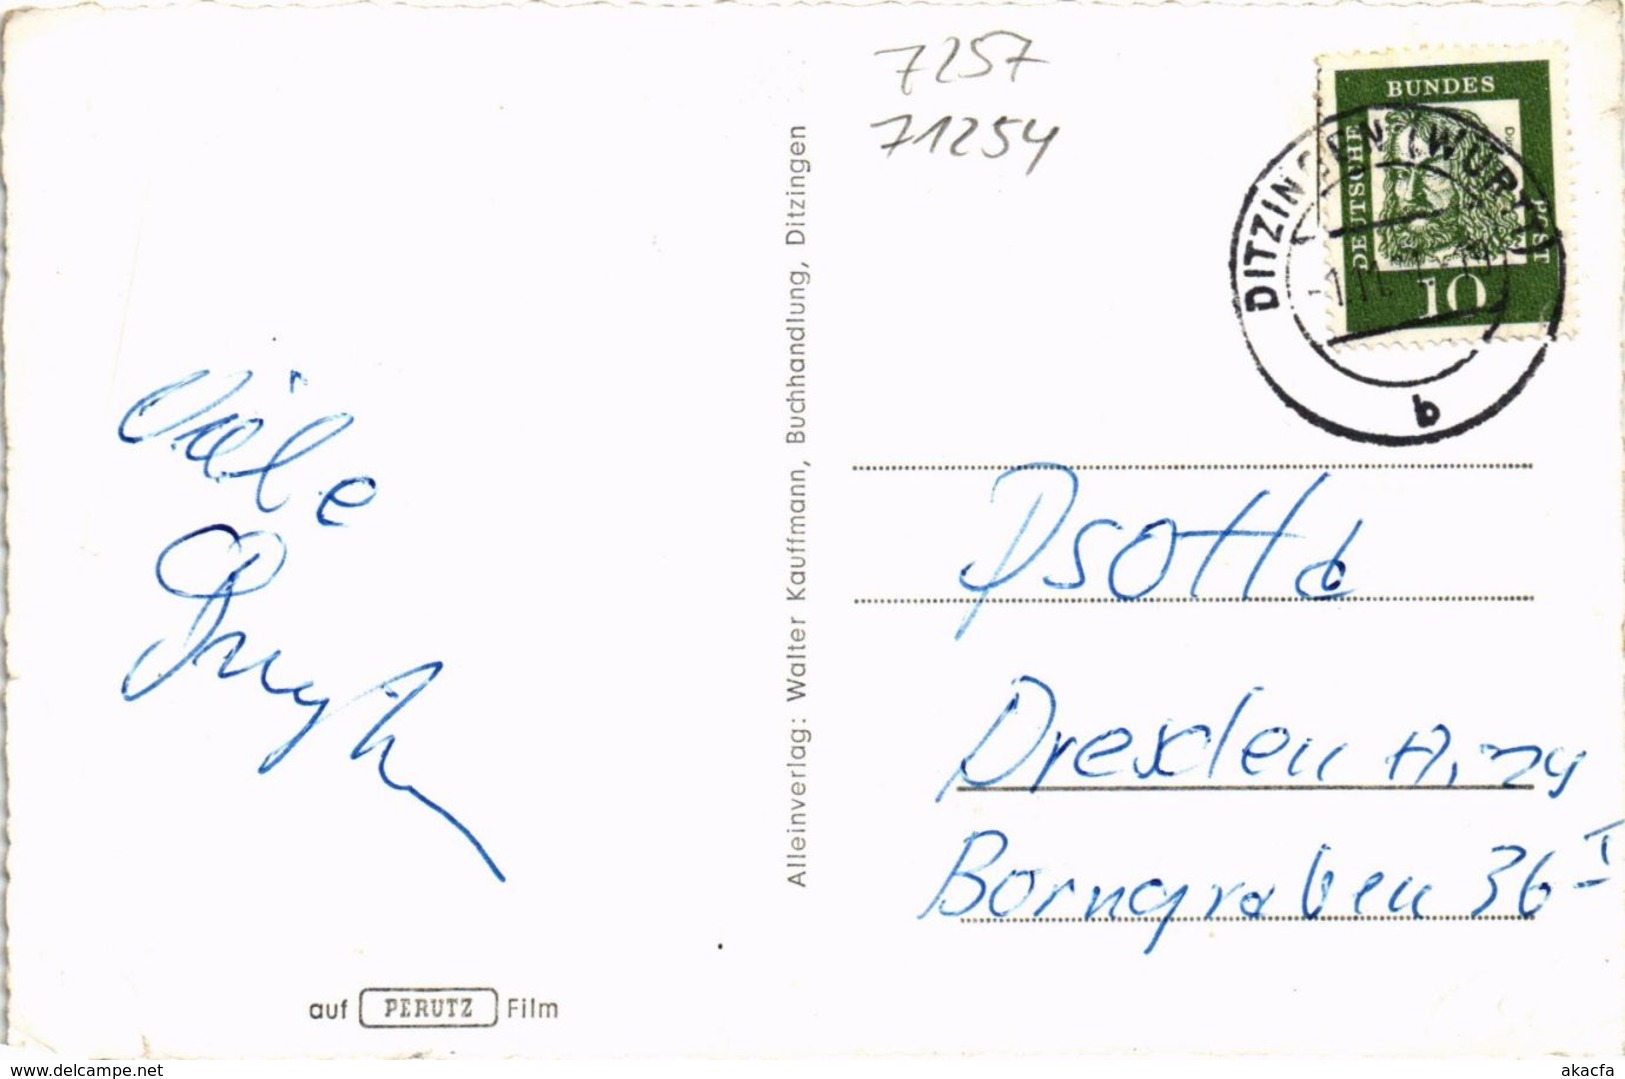 7257
71254
BUNDES
DEUTSCHE
POST
10
DITZINGEN (WÜRTT)
b
Viele
Alleinverlag: Walter Kauffmann, Buchhandlung, Ditzingen
Psotta
Dresden A. 29
Borngraben 36 I
auf PERUTZ Film
www.delcampe.net
akacfa